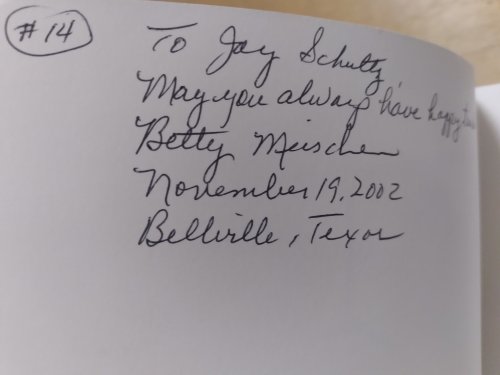 #14
To Jay Schultz,
May you always have happy times
Betty Meischen
November 19, 2002
Bellville, Texas